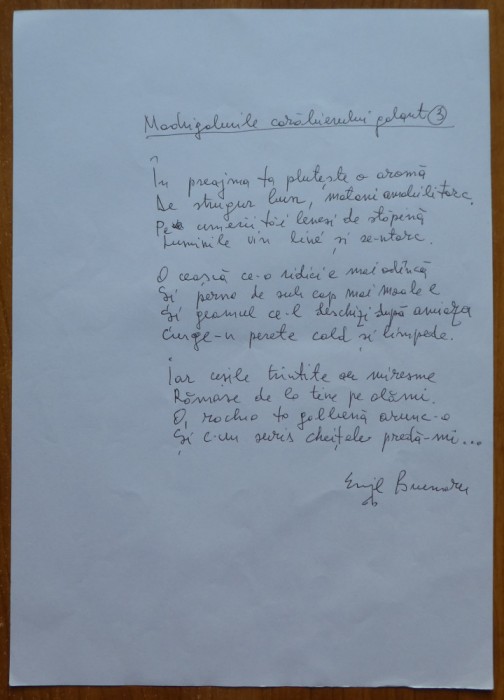 Madrigalurile cavalerului galant ③
În preajma ta plutește o aromă
De strugur bun, motani anabili torc,
Pe umerii tăi leneși de stăpînă
Luminile vin line și se-ntorc.
O ceașcă ce-o ridici e mai adîncă
Și perna de sub cap mai moale e
Și geamul ce-l deschizi după amiaza
Curge-n perete cald și limpede.
Iar ușile trîntite au miresme
Rămase de la tine pe alămi.
O, rochia ta galbenă arunc-o
Și c-un surîs cheițele predă-mi...
Emil Brumaru